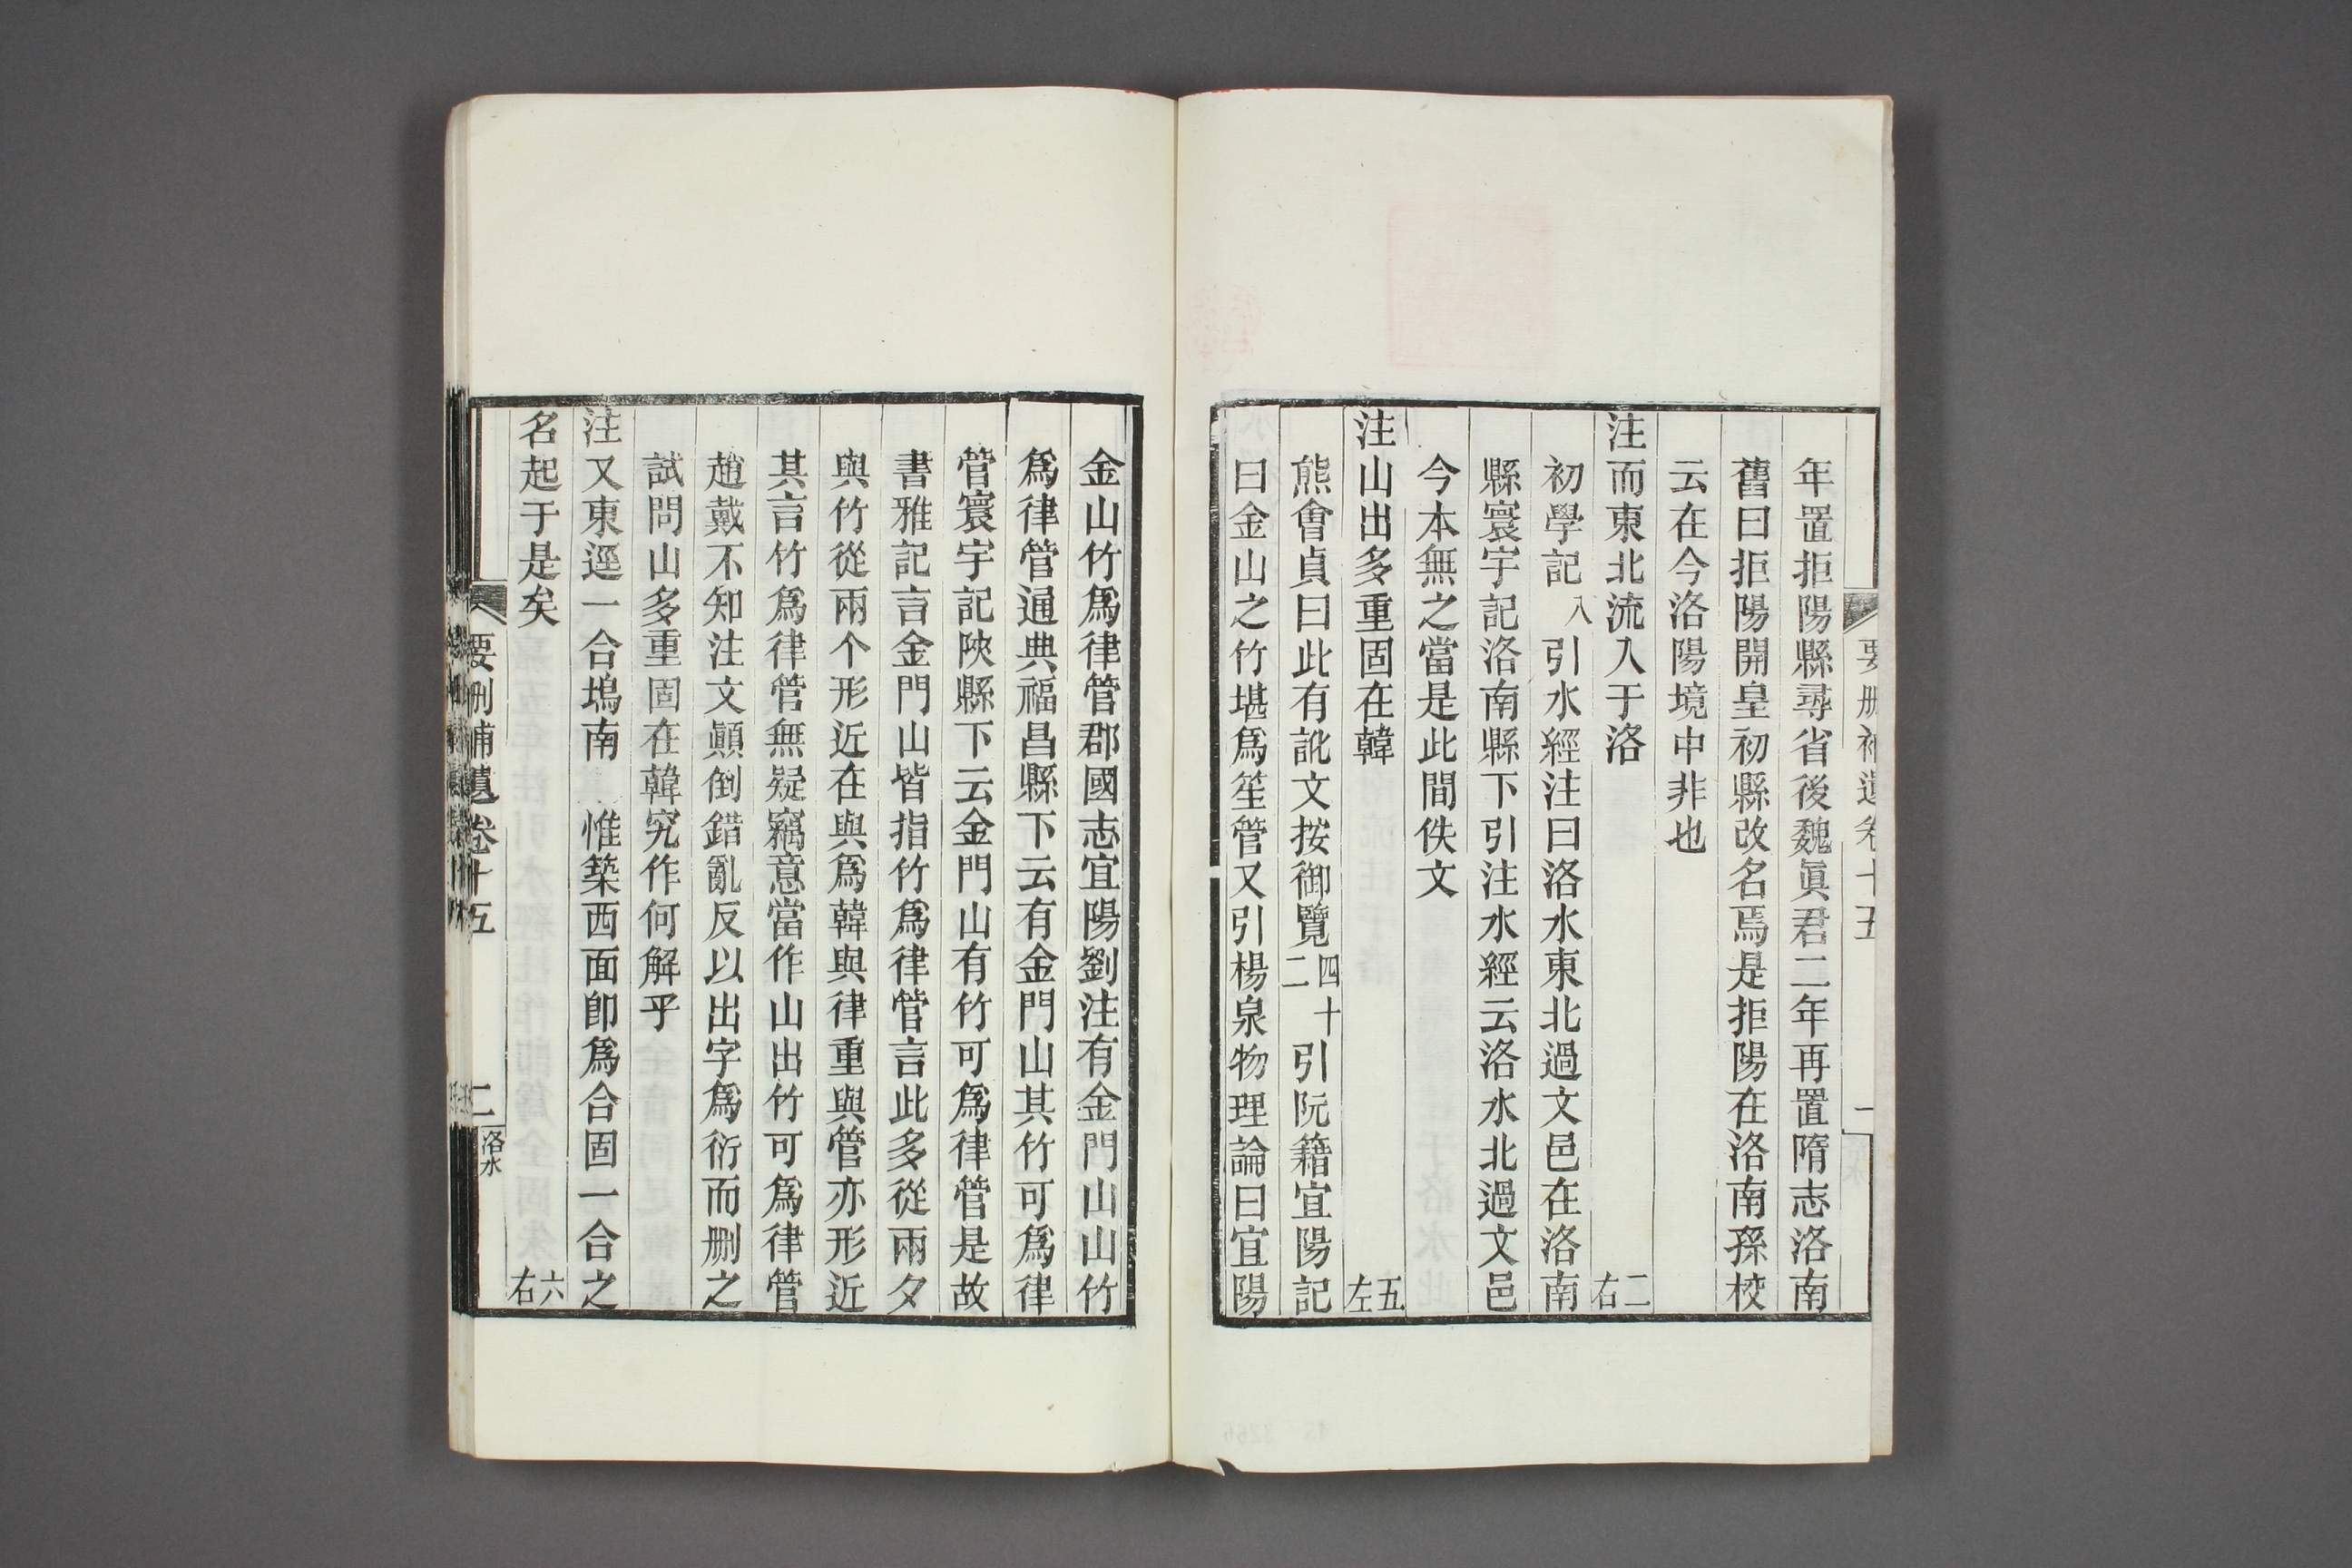 要刪補遺卷十五
一
年置拒陽縣尋省後魏眞君二年再置隋志洛南
舊曰拒陽開皇初縣改名焉是拒陽在洛南孫校
云在今洛陽境中非也
注而東北流入于洛 二右
初學記八引水經注曰洛水東北過文邑在洛南
縣寰宇記洛南縣下引注水經云洛水北過文邑
今本無之當是此間佚文
注山出多重固在韓 五左
熊會貞曰此有訛文按御覽四十二引阮籍宜陽記
曰金山之竹堪爲笙管又引楊泉物理論曰宜陽
金山竹爲律管郡國志宜陽劉注有金門山山竹
爲律管通典福昌縣下云有金門山其竹可爲律
管寰宇記陝縣下云金門山有竹可爲律管是故
書雅記言金門山皆指竹爲律管言此多從兩夕
與竹從兩个形近在與爲韓與律重與管亦形近
其言竹爲律管無疑竊意當作山出竹可爲律管
趙戴不知注文顚倒錯亂反以出字爲衍而刪之
試問山多重固在韓究作何解乎
注又東逕一合塢南 惟築西面卽爲合固一合之
名起于是矣 六右
要刪補遺卷十五
二
洛水